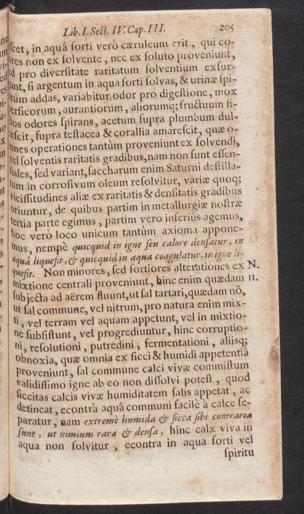 Lib. I. Sect. IV. Cap. III. 205
scet, in aquâ forti verò cæruleum erit, qui co-
res non ex solvente, nec ex soluto proveniunt,
d pro diversitate raritatum solventium exsur-
unt, si argentum in aqua forti solvas, & urinæ spi-
tum addas, variabitur odor pro digestione, mox
ersicorum, aurantiorum, aliorumq; fructuum si-
les odores spirans, acetum supra plumbum dul-
escit, supra testacea & corallia amarescit, quæ o-
nes operationes tantùm proveniunt ex solvendi,
el solventis raritatis gradibus, nam non sunt essen-
iales, sed variant, saccharum enim Saturni destilla-
um in corrosivum oleum resolvitur, variæ quoq;
vicissitudines aliæ ex raritatis & densitatis gradibus
oriuntur, de quibus partim in metallurgiæ nostræ
ertia parte egimus, partim vero inferius agemus,
hoc vero loco unicum tantùm axioma appone-
mus, nempè quicquid in igne seu calore densatur, in
aquâ liquescit, & quicquid in aqua coagulatur, in igne li-
quescit. Non minores, sed fortiores alterationes ex N.
mixtione centrali proveniunt, hinc enim quædam 11.
subjecta ad aërem fluunt, ut sal tartari, quædam nõ,
ut sal commune, vel nitrum, pro natura enim mix-
ti, vel terram vel aquam appetunt, vel in mixtio-
ne subsistunt, vel progrediuntur, hinc corruptio-
ni, resolutioni, putredini, fermentationi, aliisq;
obnoxia, quæ omnia ex sicci & humidi appetentiâ
proveniunt, sal commune calci vivæ commistum
validissimo igne ab eo non dissolvi potest, quod
siccitas calcis vivæ humiditatem salis appetat, ac
detineat, econtrà aquâ communi facilè à calce se-
paratur, nam extremè humida & sicca sibi contraria
sunt, ut nimium rara & densa, hinc calx viva in
aqua non solvitur, econtra in aqua forti vel
spiritu